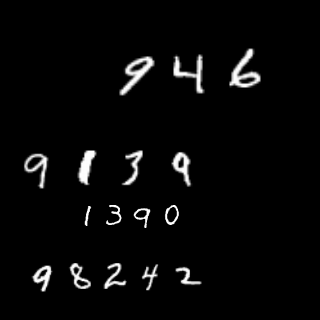 946
9139
1390
98242